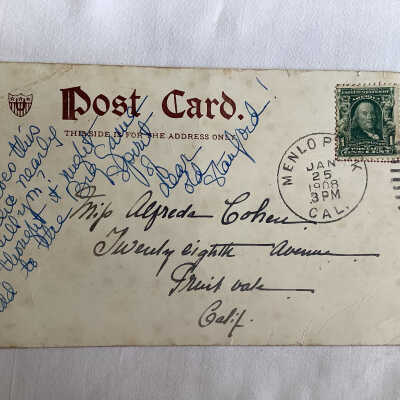 Post Card.
THIS SIDE IS FOR THE ADDRESS ONLY
MENLO P K
JAN
25
1908
3 PM
CAL.
Miss Alfreda Cohen
Twenty eighth Avenue
Fruit vale
Calif.
this
nearly
thought it might
to the
Spirit
dear
old
Stanford!